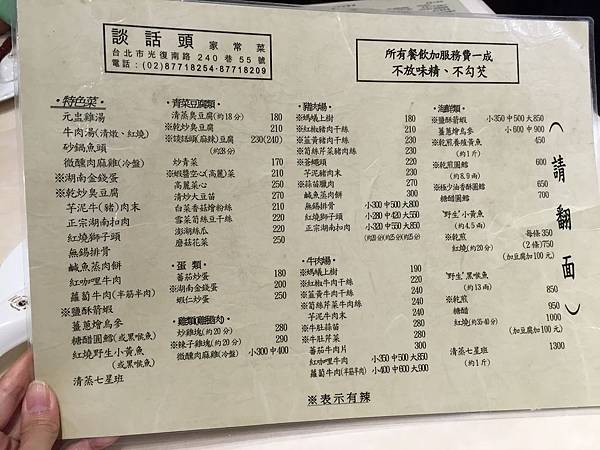 談話頭 家常菜
台北市光復南路240巷55號
電話：(02)87718254·87718209
所有餐飲加服務費一成
不放味精、不勾芡
·特色菜·
元盅雞湯
牛肉湯(清燉、紅燒)
砂鍋魚頭
微醺肉麻雞(冷盤)
※湖南金錢蛋
※乾炒臭豆腐
芋泥牛(豬)肉末
正宗湖南扣肉
紅燒獅子頭
無錫排骨
鹹魚蒸肉餅
紅咖哩牛肉
蘿蔔牛肉(半筋半肉)
※鹽酥箭蝦
薑蔥燴烏參
糖醋圓鱈(或黑喉魚)
紅燒野生小黃魚
(或黑喉魚)
清蒸七星班
·青菜豆腐類·
清蒸臭豆腐(約18分) 180
※乾炒臭豆腐 210
(麻辣)豆腐 230(240)
(約28分)
炒青菜 170
※蝦醬空心(高麗)菜 210
高麗菜心 250
清炒大豆苗 270
白菜香菇燴粉絲 210
雪菜筍絲豆干絲 210
澎湖絲瓜 240
蘑菇花菜 250
·蛋類·
蕃茄炒蛋 180
※湖南金錢蛋 200
蝦仁炒蛋 250
炒雞塊(約20分) 280
※辣子雞塊(約20分) 290
微醺肉麻雞(冷盤) 小300中400
·豬肉類·
※螞蟻上樹 180
※紅椒豬肉干絲 210
※韮黃豬肉干絲 210
※筍絲芹菜豬肉絲 210
※蒼蠅頭 220
芋泥豬肉末 220
※蒜苗臘肉 270
鹹魚蒸肉餅 300
無錫排骨 小300中500大800
紅燒獅子頭 小280中420大550
正宗湖南扣肉 小320中500大750
·牛肉類·
※螞蟻上樹 190
※紅椒牛肉干絲 220
※韮黃牛肉干絲 220
※筍絲芹菜牛肉絲 220
芋泥牛肉末 230
※牛肚蒜苗 280
※牛肚蒜苔 280
蕃茄牛肉片 300
紅咖哩牛肉 小350中550大850
蘿蔔牛肉(半筋半肉) 小400中600大900
·海鮮類·
※鹽酥箭蝦 小350中500大850
薑蔥燴烏參 小600中900
※乾煎養殖黃魚 450
(約1斤)
※乾煎圓鱈 600
(約8.9兩)
※極少油香酥圓鱈 650
糖醋圓鱈 700
"野生"小黃魚
(約4.5兩)
※乾煎 每條350
紅燒(約20分) (2條)750
(加豆腐加100元)
"野生"黑喉魚
(約13兩)
※乾煎 850
糖醋 950
紅燒(約35-40分) 1000
(加豆腐加100元)
清蒸七星班 1300
(約1斤)
(請翻面)
※表示有辣